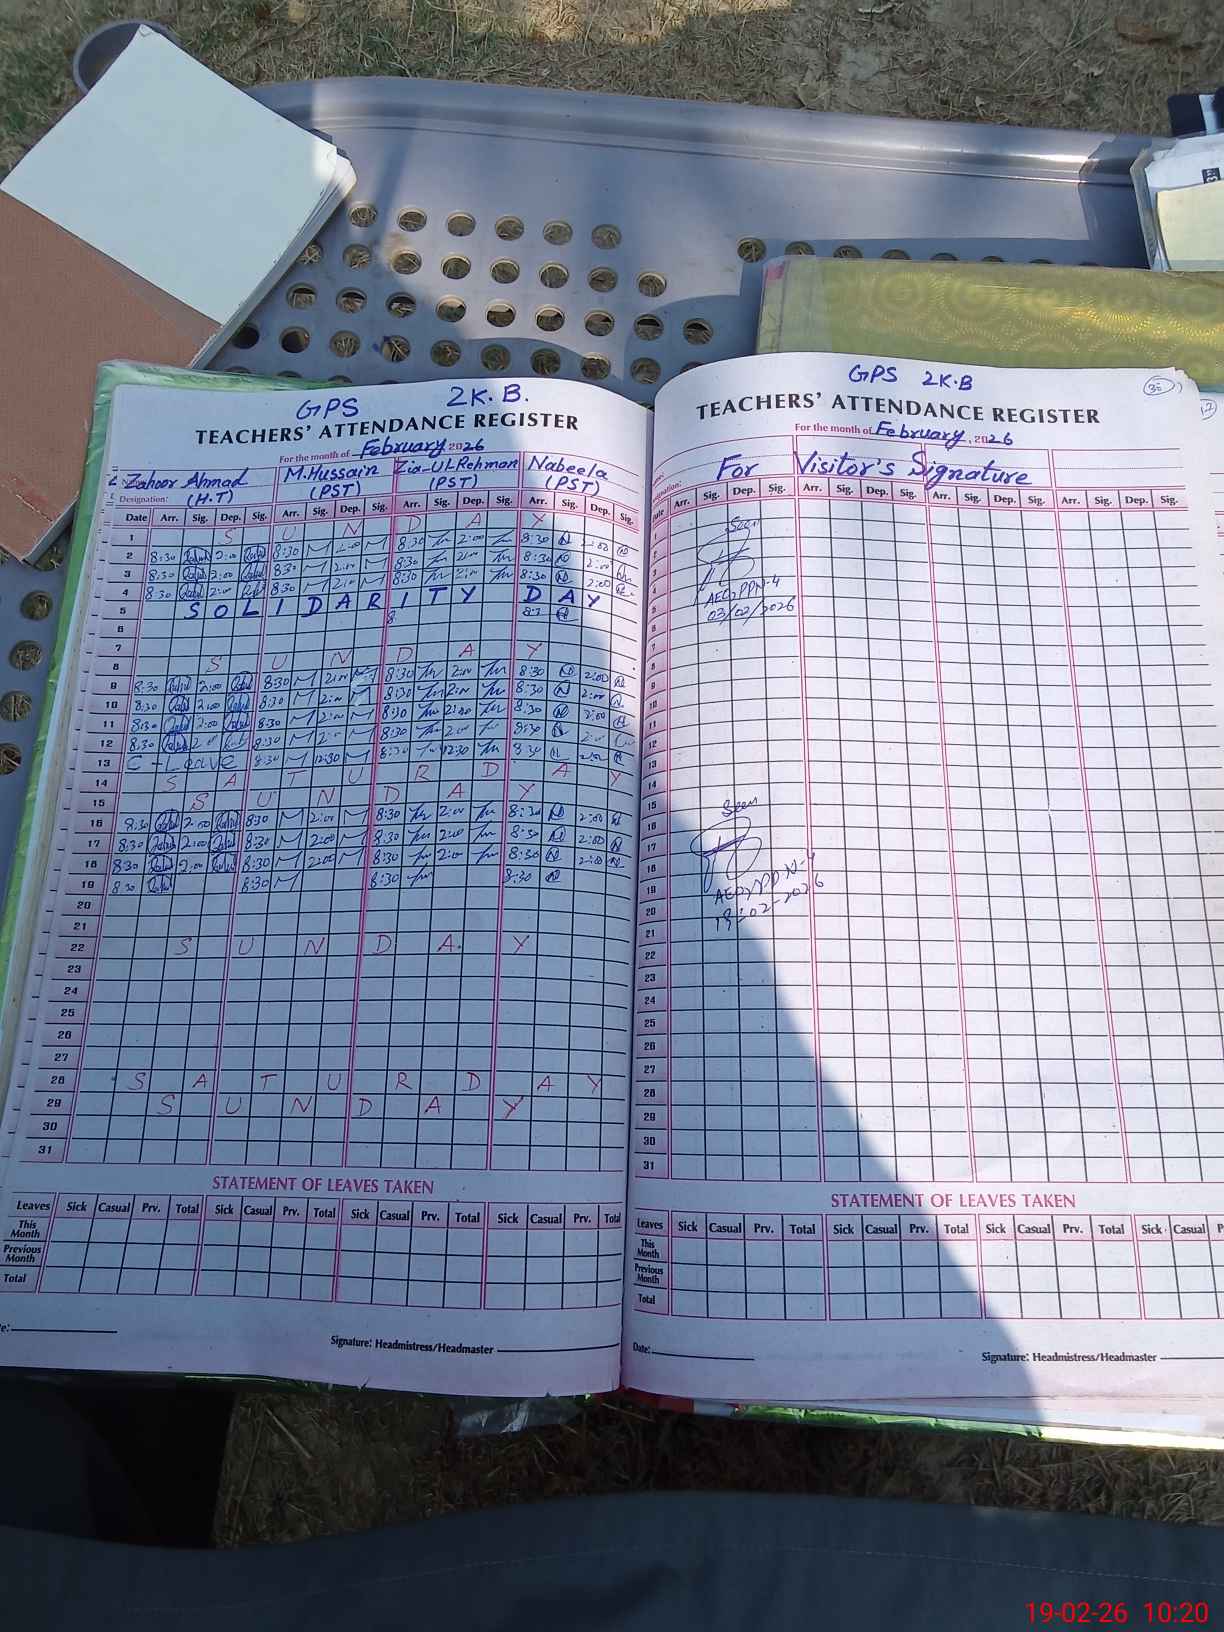 GPS 2K.B.
TEACHERS' ATTENDANCE REGISTER
For the month of February 2026
Zahoor Ahmad M.Hussain Zia-Ul-Rehman Nabeela
Designation: (H.T) (PST) (PST) (PST)
Date Arr. Sig. Dep. Sig. Arr. Sig. Dep. Sig. Arr. Sig. Dep. Sig. Arr. Sig. Dep. Sig.
1 S U N D A Y
2 8:30 2:00 8:30 M 2:00 M 8:30 2:00 8:30 N 2:00 N
3 8:30 2:00 8:30 M 2:00 M 8:30 2:00 8:30 N 2:00
4 8:30 2:00 8:30 M 2:00 M 8:30 2:00 8:30 N 2:00
5 S O L I D A R I T Y D A Y
6
7
8 S U N D A Y
9 8:30 2:00 8:30 M 2:00 M 8:30 2:00 8:30 N 2:00 N
10 8:30 2:00 8:30 M 2:00 M 8:30 2:00 8:30 N 2:00 N
11 8:30 2:00 8:30 M 2:00 M 8:30 2:00 8:30 N 2:00 N
12 8:30 8:30 M 2:00 M 8:30 2:00 8:30 N
13 C-Leave 8:30 M 12:30 M 8:30 12:30 8:30 N
14 S A T U R D A Y
15 S U N D A Y
16 8:30 2:00 8:30 M 2:00 M 8:30 2:00 8:30 N 2:00 N
17 8:30 2:00 8:30 M 2:00 M 8:30 2:00 8:30 N 2:00 N
18 8:30 2:00 8:30 M 2:00 M 8:30 2:00 8:30 N 2:00 N
19 8:30 8:30 M 8:30 8:30 N
20
21
22 S U N D A Y
23
24
25
26
27
28 S A T U R D A Y
29 S U N D A Y
30
31
STATEMENT OF LEAVES TAKEN
Leaves Sick Casual Prv. Total Sick Casual Prv. Total Sick Casual Prv. Total Sick Casual Prv. Total
This Month
Previous Month
Total
Signature: Headmistress/Headmaster
GPS 2K.B
30
TEACHERS' ATTENDANCE REGISTER
For the month of February, 2026
For Visitor's Signature
Date Arr. Sig. Dep. Sig. Arr. Sig. Dep. Sig. Arr. Sig. Dep. Sig. Arr. Sig. Dep. Sig.
1
2
3
4
5
6
7
8
9
10
11
12
13
14
15
16
17
18
19
20
21
22
23
24
25
26
27
28
29
30
31
Seen
AEO, PPN-4
03/02/2026
Seen
AEO, PPN-4
19-02-2026
STATEMENT OF LEAVES TAKEN
Leaves Sick Casual Prv. Total Sick Casual Prv. Total Sick Casual Prv. Total Sick Casual
This Month
Previous Month
Total
Date:
Signature: Headmistress/Headmaster
19-02-26 10:20